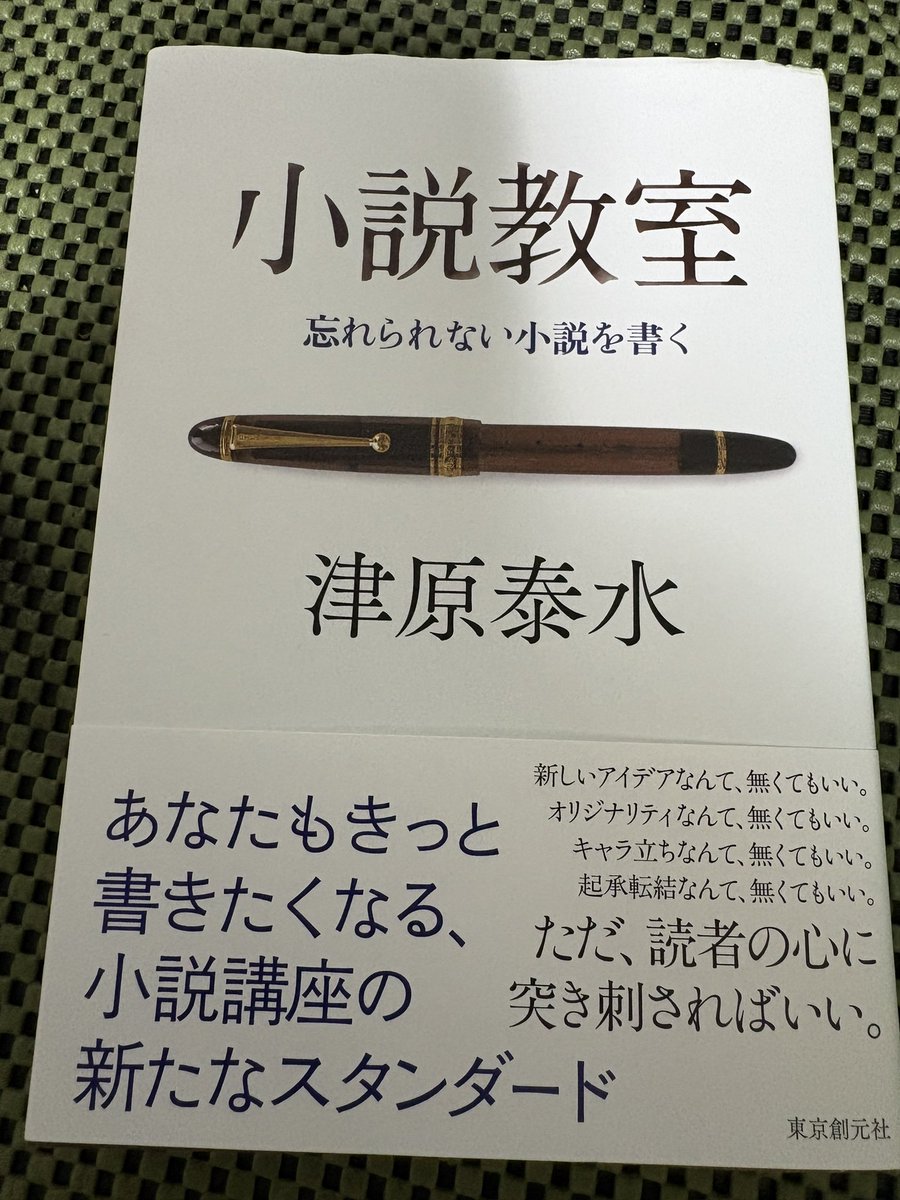 小説教室
忘れられない小説を書く
津原泰水
あなたもきっと
書きたくなる、
小説講座の
新たなスタンダード
新しいアイデアなんて、無くてもいい。
オリジナリティなんて、無くてもいい。
キャラ立ちなんて、無くてもいい。
起承転結なんて、無くてもいい。
ただ、読者の心に
突き刺さればいい。
東京創元社